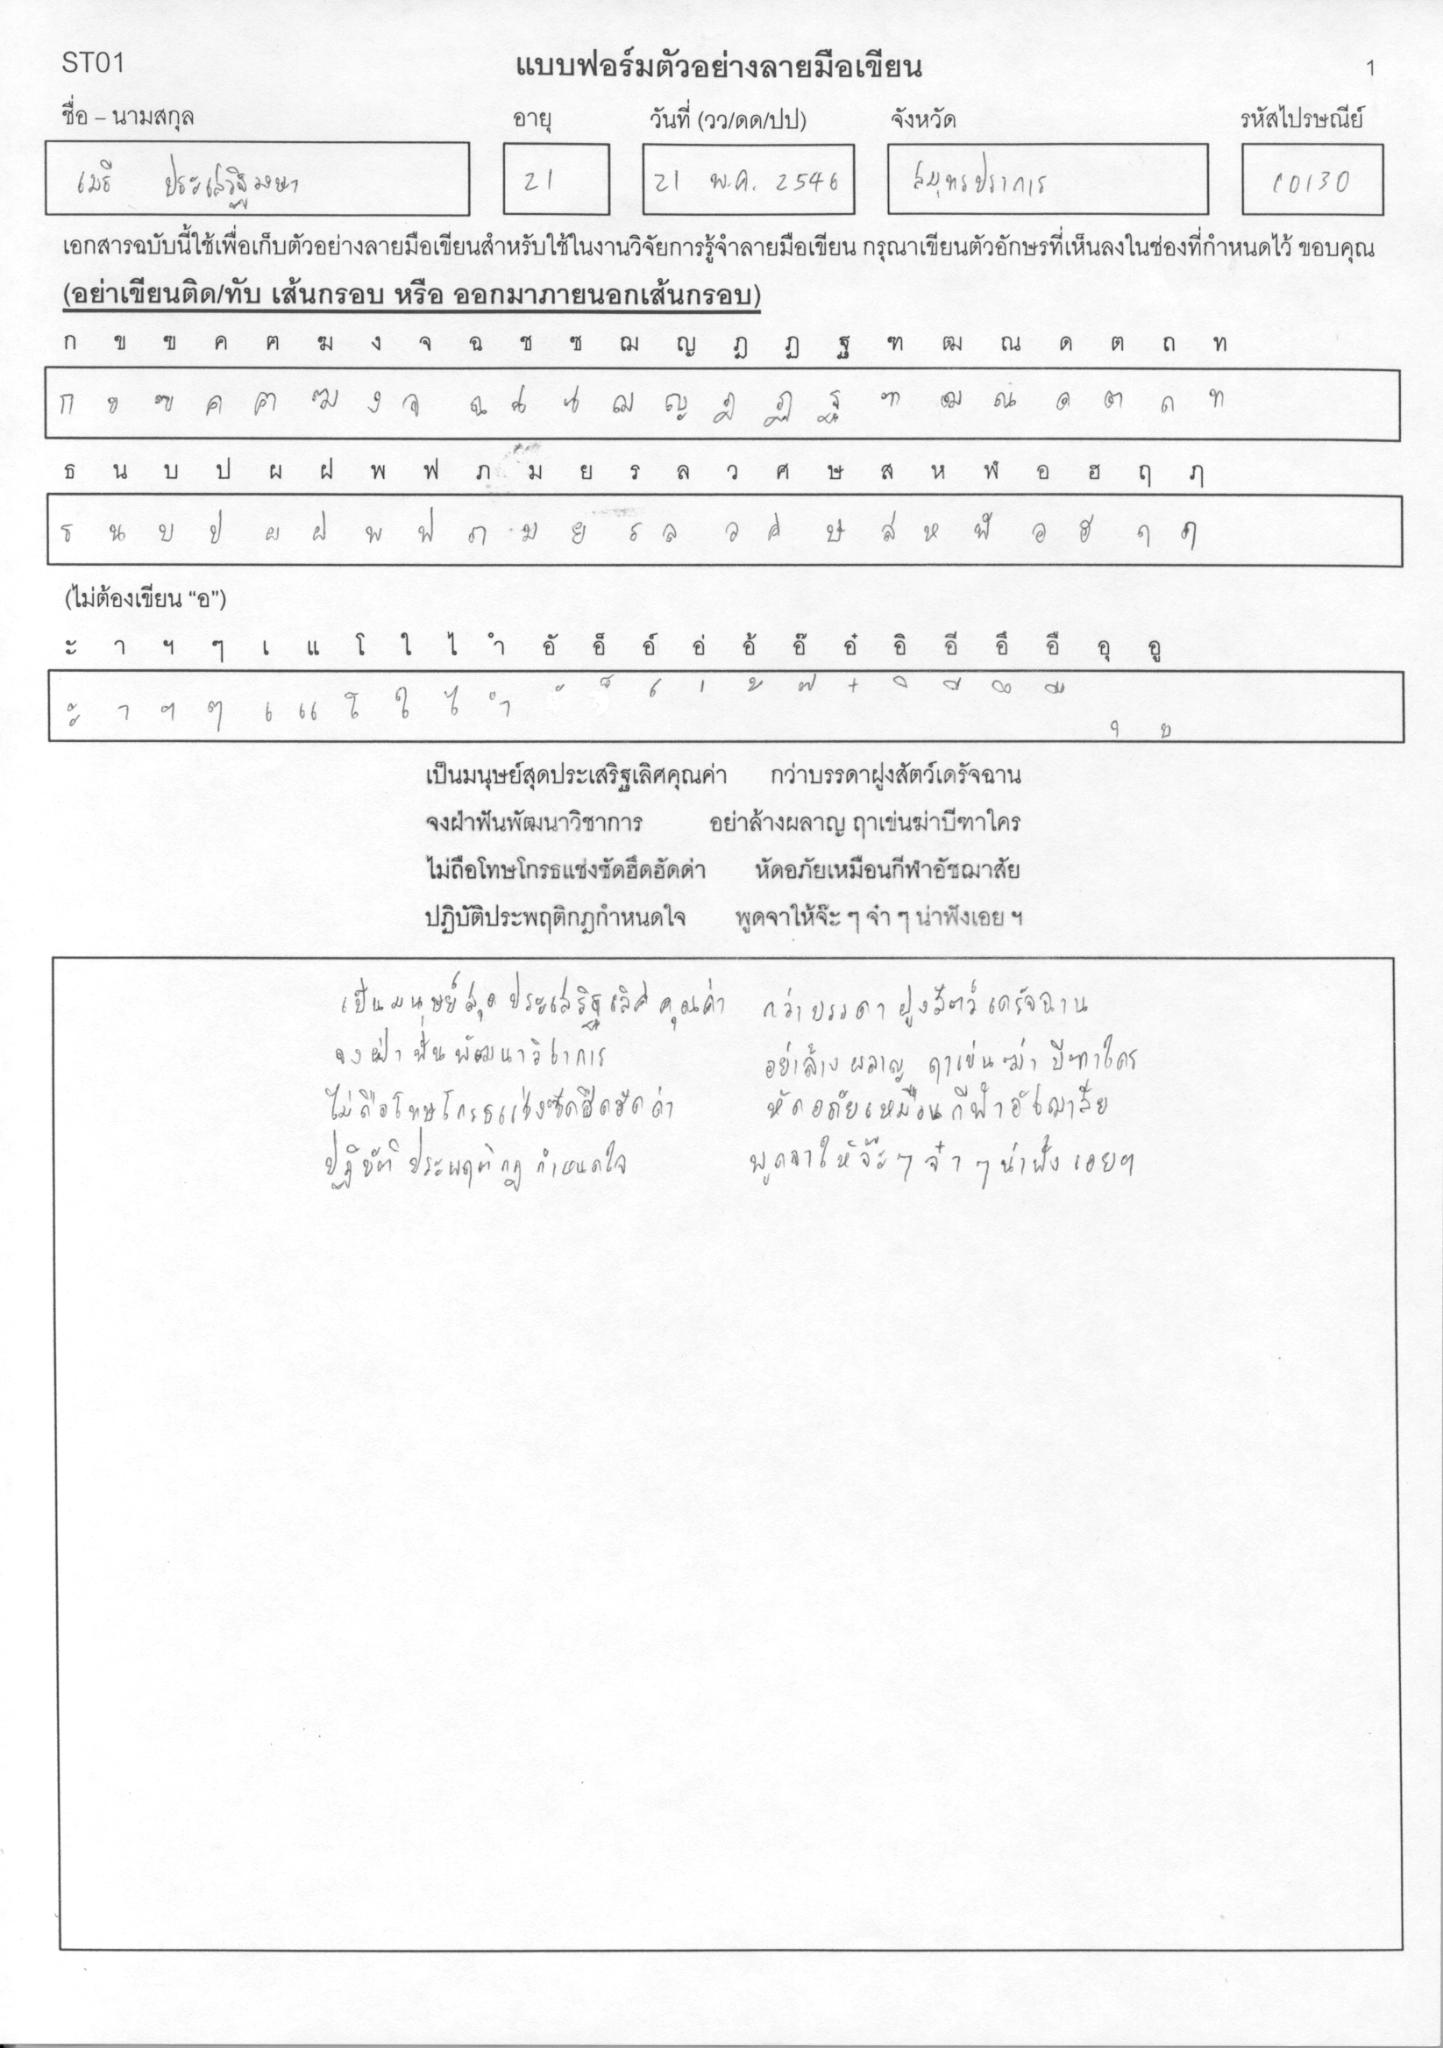 ST01 แบบฟอร์มตัวอย่างลายมือเขียน 1
ชื่อ – นามสกุล อายุ วันที่ (วว/ดด/ปป) จังหวัด รหัสไปรษณีย์
เมธี 21 21 พ.ค. 2546 สมุทรปราการ 10130
เอกสารฉบับนี้ใช้เพื่อเก็บตัวอย่างลายมือเขียนสำหรับใช้ในงานวิจัยการรู้จำลายมือเขียน กรุณาเขียนตัวอักษรที่เห็นลงในช่องที่กำหนดไว้ ขอบคุณ
(อย่าเขียนติด/ทับ เส้นกรอบ หรือ ออกมาภายนอกเส้นกรอบ)
ก ข ฃ ค ฅ ฆ ง จ ฉ ช ซ ฌ ญ ฎ ฏ ฐ ฑ ฒ ณ ด ต ถ ท
ก ข ฃ ค ฅ ฆ ง จ ฉ ช ซ ฌ ญ ฎ ฏ ฐ ฑ ฒ ณ ด ต ถ ท
ธ น บ ป ผ ฝ พ ฟ ภ ม ย ร ล ว ศ ษ ส ห ฬ อ ฮ ฤ ฦ
ธ น บ ป ผ ฝ พ ฟ ภ ม ย ร ล ว ศ ษ ส ห ฬ อ ฮ ฤ ฦ
(ไม่ต้องเขียน “อ”)
ะ า ฯ ๆ เ แ โ ใ ไ ำ อั อ็ อ์ อ่ อ้ อ๊ อ๋ อิ อี อึ อื อุ อู
ะ า ฯ ๆ เ แ โ ใ ไ ำ ั ็ ์ ่ ้ ๊ ๋ ิ ี ึ ื ุ ู
เป็นมนุษย์สุดประเสริฐเลิศคุณค่า กว่าบรรดาฝูงสัตว์เดรัจฉาน
จงฝ่าฟันพัฒนาวิชาการ อย่าล้างผลาญ ฤาเข่นฆ่าบีฑาใคร
ไม่ถือโทษโกรธแช่งซัดฮึดฮัดด่า หัดอภัยเหมือนกีฬาอัชฌาสัย
ปฏิบัติประพฤติกฎกำหนดใจ พูดจาให้จ๊ะ ๆ จ๋า ๆ น่าฟังเอย ฯ
เป็นมนุษย์สุด ประเสริฐเลิศ คุณค่า กว่า บรรดา ฝูงสัตว์ เดรัจฉาน
จงฝ่า ฟัน พัฒนาวิชาการ อย่าล้าง ผลาญ ฤาเข่นฆ่า บีฑาใคร
ไม่ถือโทษโกรธแช่งซัดฮึดฮัด ด่า หัดอภัยเหมือนกีฬาอัชฌาสัย
ปฏิบัติ ประพฤติกฎ กำหนดใจ พูดจาให้จ๊ะ ๆ จ๋า ๆ น่าฟัง เอยฯ